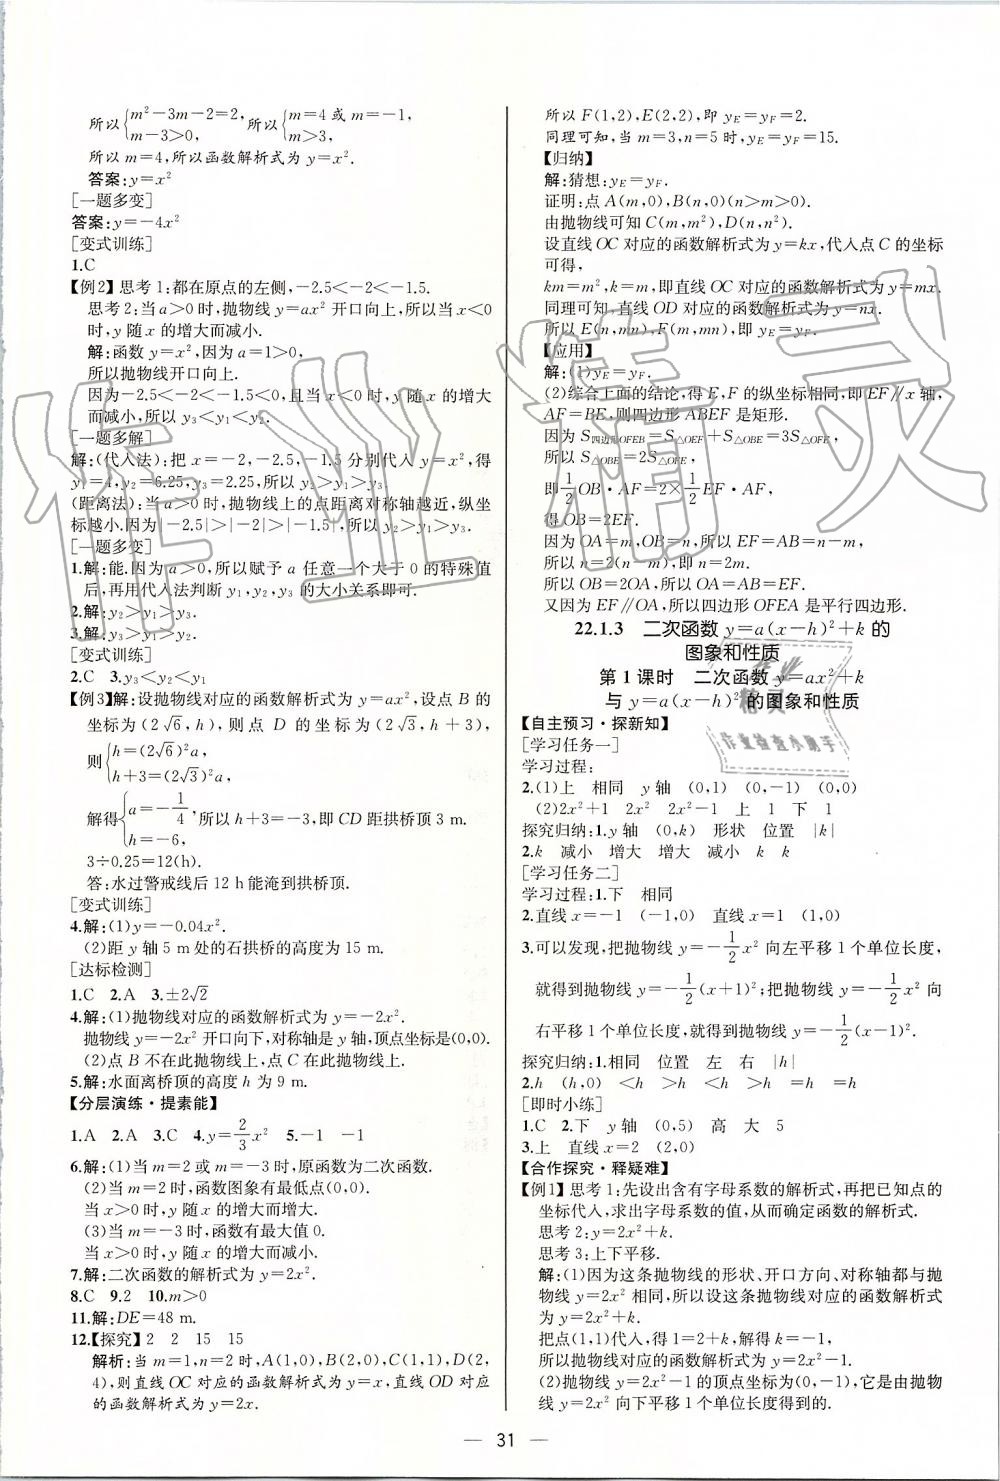 所以{m²－3m－2＝2, m－3＞0, 所以{m＝4或m＝－1, m＞3,
所以m＝4,所以函数解析式为y＝x².
答案:y＝x²
[一题多变]
答案:y＝－4x²
[变式训练]
1.C
【例2】思考1:都在原点的左侧,－2.5＜－2＜－1.5.
思考2:当a＞0时,抛物线y＝ax²开口向上,所以当x＜0
时,y随x的增大而减小.
解:函数y＝x²,因为a＝1＞0,
所以抛物线开口向上.
因为－2.5＜－2＜－1.5＜0,且当x＜0时,y随x的增大
而减小,所以y₃＜y₁＜y₂.
[一题多解]
解:(代入法):把x＝－2,－2.5,－1.5分别代入y＝x²,得
y₁＝4,y₂＝6.25,y₃＝2.25,所以y₂＞y₁＞y₃.
(距离法):当a＞0时,抛物线上的点距离对称轴越近,纵坐
标越小.因为|－2.5|＞|－2|＞|－1.5|,所以y₂＞y₁＞y₃.
[一题多变]
1.解:能.因为a＞0,所以赋予a任意一个大于0的特殊值
后,再用代入法判断y₁,y₂,y₃的大小关系即可.
2.解:y₂＞y₁＞y₃.
3.解:y₃＞y₁＞y₂.
[变式训练]
2.C 3.y₃＜y₂＜y₁
【例3】解:设抛物线对应的函数解析式为y＝ax²,设点B的
坐标为(2√6,h),则点D的坐标为(2√3,h＋3),
则{h＝(2√6)²a, h＋3＝(2√3)²a,
解得{a＝－1/4, h＝－6, 所以h＋3＝－3,即CD距拱桥顶3 m.
3÷0.25＝12(h).
答:水过警戒线后12 h能淹到拱桥顶.
[变式训练]
4.解:(1)y＝－0.04x².
(2)距y轴5 m处的石拱桥的高度为15 m.
[达标检测]
1.C 2.A 3.±2√2
4.解:(1)抛物线对应的函数解析式为y＝－2x².
抛物线y＝－2x²开口向下,对称轴是y轴,顶点坐标是(0,0).
(2)点B不在此抛物线上,点C在此抛物线上.
5.解:水面离桥顶的高度h为9 m.
【分层演练·提素能】
1.A 2.A 3.C 4.y＝2/3x² 5.－1 －1
6.解:(1)当m＝2或m＝－3时,原函数为二次函数.
(2)当m＝2时,函数图象有最低点(0,0).
当x＞0时,y随x的增大而增大.
(3)当m＝－3时,函数有最大值0.
当x＞0时,y随x的增大而减小.
7.解:二次函数的解析式为y＝2x².
8.C 9.2 10.m＞0
11.解:DE＝48 m.
12.【探究】2 2 15 15
解析:当m＝1,n＝2时,A(1,0),B(2,0),C(1,1),D(2,
4),则直线OC对应的函数解析式为y＝x,直线OD对应
的函数解析式为y＝2x.
所以F(1,2),E(2,2),即yE＝yF＝2.
同理可知,当m＝3,n＝5时,yE＝yF＝15.
【归纳】
解:猜想:yE＝yF.
证明:点A(m,0),B(n,0)(n＞m＞0).
由抛物线可知C(m,m²),D(n,n²).
设直线OC对应的函数解析式为y＝kx,代入点C的坐标
可得,
km＝m²,k＝m,即直线OC对应的函数解析式为y＝mx.
同理可知,直线OD对应的函数解析式为y＝nx.
所以E(n,mn),F(m,mn),即yE＝yF.
【应用】
解:(1)yE＝yF.
(2)综合上面的结论,得E,F的纵坐标相同,即EF∥x轴,
AF＝BE,则四边形ABEF是矩形.
因为S四边形OFEB＝S△OEF＋S△OBE＝3S△OFE,
所以S△OBE＝2S△OFE,
即1/2OB·AF＝2×1/2EF·AF,
得OB＝2EF.
因为OA＝m,OB＝n,所以EF＝AB＝n－m,
所以n＝2(n－m),即n＝2m.
所以OB＝2OA,所以OA＝AB＝EF.
又因为EF∥OA,所以四边形OFEA是平行四边形.
22.1.3 二次函数y＝a(x－h)²＋k的
图象和性质
第1课时 二次函数y＝ax²＋k
与y＝a(x－h)²的图象和性质
【自主预习·探新知】
[学习任务一]
学习过程:
2.(1)上 相同 y轴 (0,1) (0,－1) (0,0)
(2)2x²＋1 2x² 2x²－1 上 1 下 1
探究归纳:1.y轴 (0,k) 形状 位置 |k|
2.k 减小 增大 增大 减小 k k
[学习任务二]
学习过程:1.下 相同
2.直线x＝－1 (－1,0) 直线x＝1 (1,0)
3.可以发现,把抛物线y＝－1/2x²向左平移1个单位长度,
就得到抛物线y＝－1/2(x＋1)²;把抛物线y＝－1/2x²向
右平移1个单位长度,就得到抛物线y＝－1/2(x－1)².
探究归纳:1.相同 位置 左 右 |h|
2.h (h,0) ＜h ＞h ＜h ＞h
[即时小练]
1.C 2.下 y轴 (0,5) 高 大 5
3.上 直线x＝2 (2,0)
【合作探究·释疑难】
【例1】思考1:先设出含有字母系数的解析式,再把已知点的
坐标代入,求出字母系数的值,从而确定函数的解析式.
思考2:y＝2x²＋k.
思考3:上下平移.
解:(1)因为这条抛物线的形状、开口方向、对称轴都与抛
物线y＝2x²相同,所以设这条抛物线对应的函数解析式
为y＝2x²＋k.
把点(1,1)代入,得1＝2＋k,解得k＝－1.
所以抛物线对应的函数解析式为y＝2x²－1.
(2)抛物线y＝2x²－1的顶点坐标为(0,－1),它是由抛物
线y＝2x²向下平移1个单位长度得到的.
— 31 —
作业精灵
作业
精灵
作业检查小助手